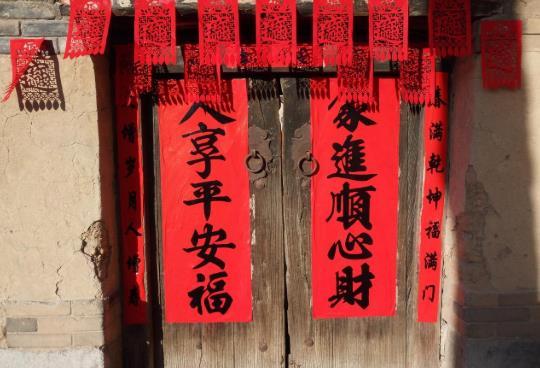 春满乾坤福满门
家進順心財
人享平安福
增岁月人增寿